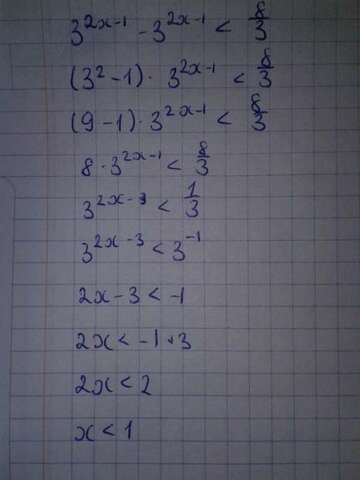 3^{2x-1} - 3^{2x-1} < 8/3
(3² - 1) · 3^{2x-1} < 8/3
(9 - 1) · 3^{2x-1} < 8/3
8 · 3^{2x-1} < 8/3
3^{2x-3} < 1/3
3^{2x-3} < 3^{-1}
2x - 3 < -1
2x < -1 + 3
2x < 2
x < 1